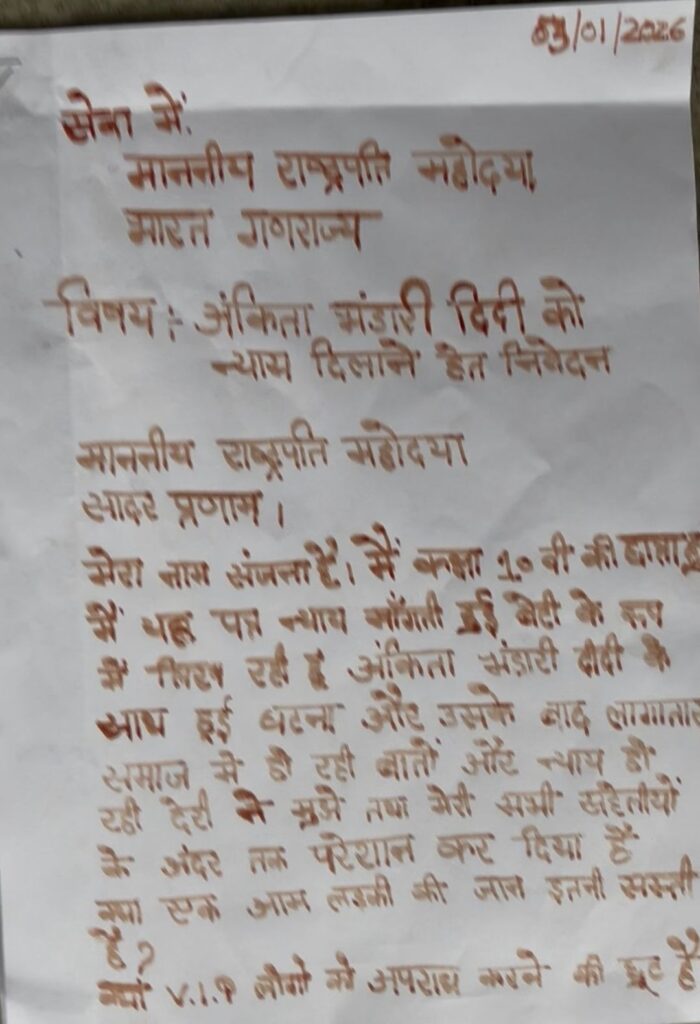 03/01/2026
सेवा में.
माननीय राष्ट्रपति महोदया,
भारत गणराज्य
विषय :- अंकिता भंडारी दिदी को
न्याय दिलाने हेत निवेदन
माननीय राष्ट्रपति महोदया
सादर प्रणाम ।
मेरा नाम संजना है। मैं कक्षा 10 वी की छात्रा हू
मैं यह पत्र न्याय माँगती हुई बेटी के रूप
में लिख रही हूं अंकिता भंडारी दीदी के
साथ हुई घटना और उसके बाद लागातार
समाज में हो रही बातों और न्याय हो
रही देरी ने मुझे तथा मेरी सभी सहेलीयों
के अंदर तक परेशान कर दिया है
क्या एक आम लडकी की जान इतनी सस्ती
है ?
क्या V.I.P लोगो को अपराध करने की छूट है